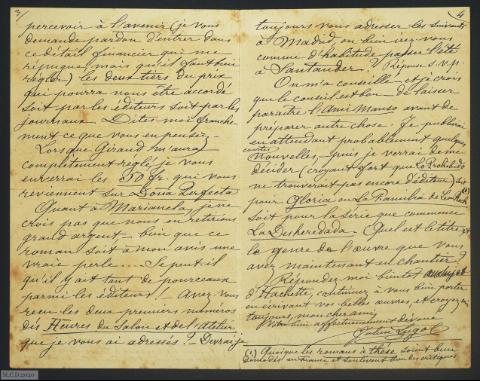 3/
percevoir à l'avenir (je vous
demande pardon d'entrer dans
ce détail financier qui me
répugne mais qu'il faut bien
régler) les deux tiers du prix
qui pourra nous être accordé
soit par les éditeurs soit par les
journaux. Dites-moi franche
ment ce que vous en pensez.
Lorsque Giraud m'aura
complètement réglé, je vous
enverrai les 50 fr qui vous
reviennent sur Doña Perfecta
Quant à Marianela, je ne
crois pas que nous en retirions
grand argent - bien que ce
roman soit à mon avis une
vraie perle. Se peut-il
qu'il y ait tant de pourceaux
parmi les éditeurs! Avez-vous
reçu les deux premiers numéros
des Heures du Salon et de l'Atelier
que je vous ai adressés? Devrai-je
4
toujours vous adresser les suivants
à Madrid, ou bien irez-vous
comme d'habitude passer l'été
à Santander? Réponse s.v.p.
On m'a conseillé - et je crois
que le conseil est bon de laisser
paraître l'Ami Manso avant de
préparer autre chose. Je publierai
en attendant probablement quelques
contes
nouvelles, puis je verrai à me
décider (croyant fort que La Prohibido
ne trouverait pas encore d'éditeur) soit
pour Gloria ou La Familia de León Roch (1)
soit pour la série que commence
La Desheredada. Quel est le titre et
le genre de l'œuvre que vous
avez maintenant en chantier?
Répondez-moi bientôt au sujet
d'Hachette, continuez à vous bien porter
en écrivant vos belles œuvres, et croyez-moi
toujours, mon cher ami,
Votre bien affectueusement dévoué
Julien Lugol
(1) Quoique les romans à thèse soient bien
démodés en France et soulèvent bien des critiques
M.C.D. 2020